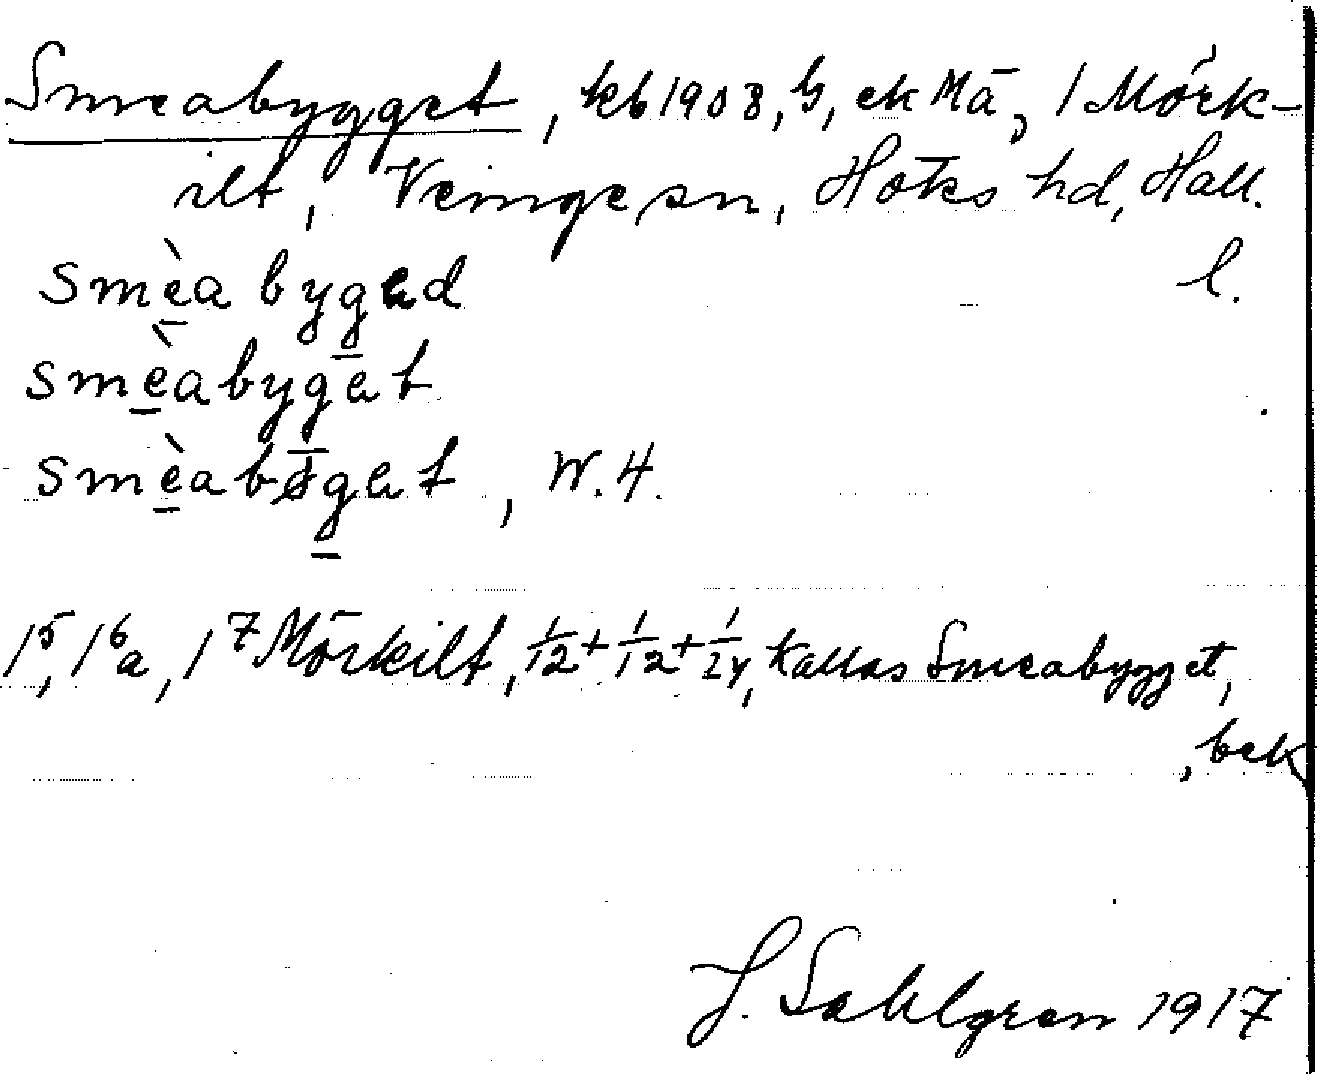 Smeabygget, kb 1908, G, ek Mā, 1 Mörk-
ilt, Veinge sn, Höks hd, Hall.
l.
smèa bygad
smèabygat
smèabygat, W. 4.
1⁵, 1⁶a, 1⁷ Mörkilt, 1/12 + 1/12 + 1/24, kallas Smeabygget,
, bek
J. Sahlgren 1917